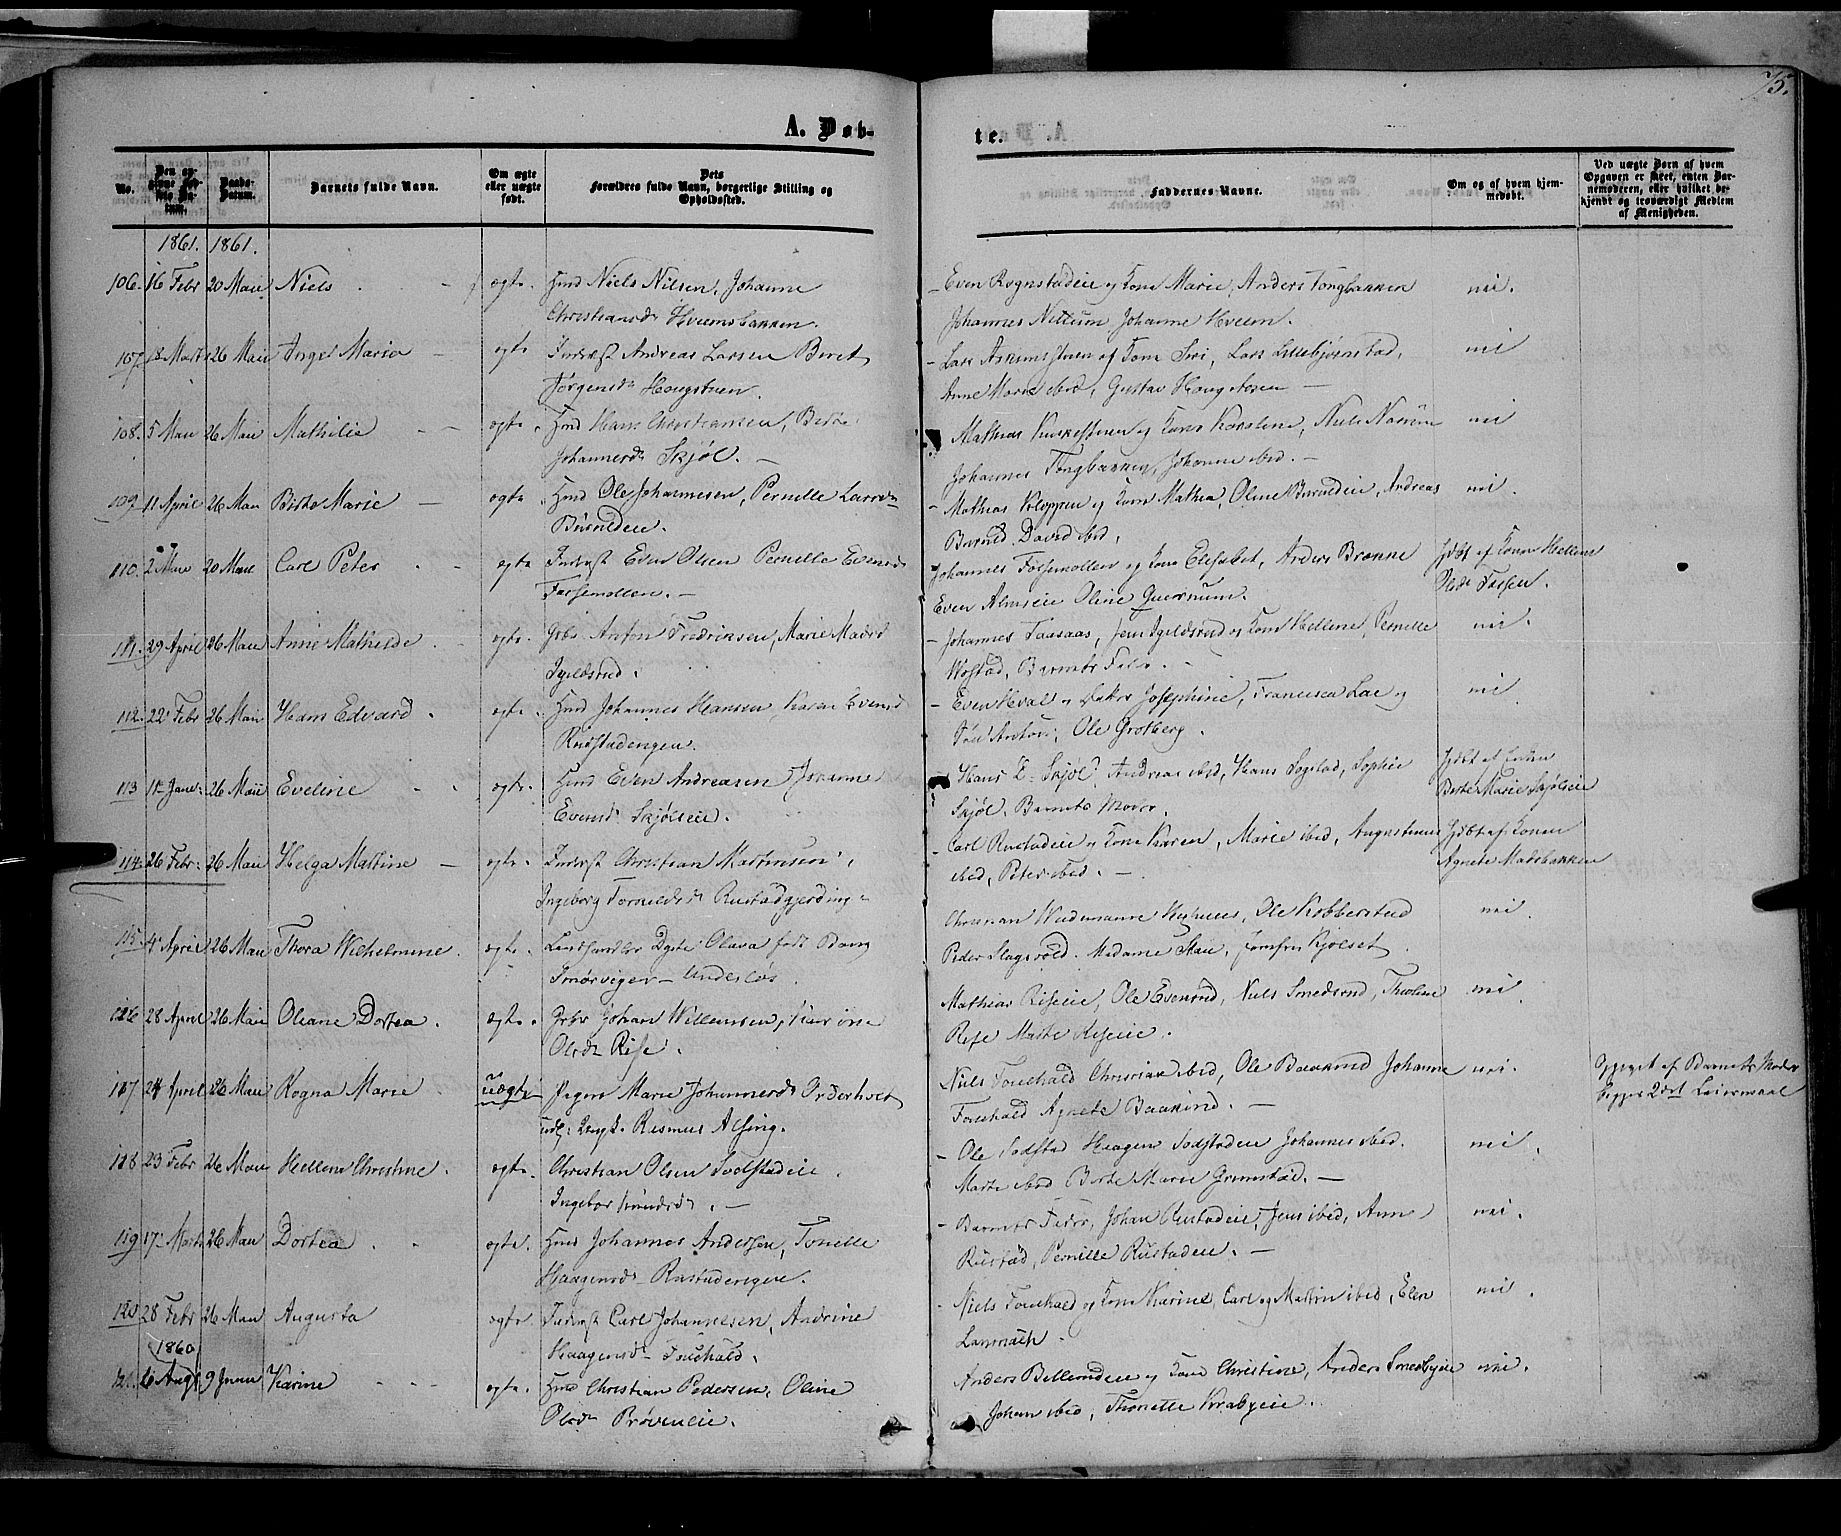 75.
A. Døb-
te.
No.
Den op-
givne Fød-
sels Da-
tum.
Daabs-
Datum.
Barnets fulde Navn.
Om ægte
eller uægte
født.
Dets
Forældres fulde Navn, borgerlige Stilling og
Opholdssted.
Faddernes Navne.
Om og af hvem hjem-
medøbt.
Ved uægte Børn af hvem
Opgaven er skeet, enten Bar-
nemoderen, eller hvilket be-
kjendt og troværdigt Medlem
af Menigheden.
1861. 1861.
106. 16 Febr 20 Mai Niels ægte. Husd Niels Nilsen, Johanne
Christiansdr Hveemsbakken.
Even Rognstadeie og Kone Marie, Anders Tongbakken nei.
Johannes Nettum Johanne Hveem.
107. 18 Marts 26 Mai Inger Maria ægte Inderst Andreas Larsen Beret
Jørgensdr Hougstuen.
Lars Askimstuen og Kone Siri, Lars Lillebjørnstad, nei
Anne Marie ibid, Gustav Hougstuen
108. 5 Mai 26 Mai Mathilie ægte. Husd Hans Christiansen, Berte
Johannesdr Skjøl.
Mathias og Kone Karolene, Niels Narum nei
Johannes Tongbakken, Johanne ibid.
109. 11 April 26 Mai Berte Marie ægte. Husd Ole Johannesen, Pernelle Larsdr
Burudeie.
Mathias Kloppen og Kone Mathea, Oline Burudeie, Andreas nei.
Burud David ibid.
110. 2 Mai 20 Mai Carl Peter ægte Inderst Even Olsen Pernelle Evensdr
Fossemøllen.
Johannes Fossemøllen og Kone Elisabet, Anders Brænne hjdbt af Konen Hellene
Even Almseie Oline Quernum. Olsdr Fossen.
111. 29 April 26 Mai Anne Mathilde ægte. Gbr Anton Fredriksen, Marie Madsd
Igelsrud.
Johannes Taasaas, Jens Igelsrud og Kone Hellene, Pernille nei.
Wostad, Barnets Fader.
112. 22 Febr 26 Mai Hans Edvard ægte. Husd Johannes Hansen, Karen Evensd
Rustadengen.
Even Hval og Datter Josephine, Francisca Lae og nei
Søn Anton, Ole Grotberg.
113 14 Janr. 26 Mai Eveline ægte. Husd Even Andreasen Johanne
Evensdr Skjølseie.
Hans E. Skjøl, Andreas ibid, Hans Sogstad, Sophie hjdbt af Enken
Skjøl, Barnets Moder. Berte Marie Skjølseie
114. 26 Febr. 26 Mai Helga Martine ægte. Inderst Christian Martinsen,
Ingeborg Rustadgjerding
Carl Rustadeie og Kone Karen, Marie ibid, Augustinus hjdbt af Konen
ibid, Peter ibid. Agnete Madsbakken
115. 4 April 26 Mai Thora Wilhelmine. ægte. Landhandler Dyste Olava født Bang
Smørvigen Underlös.
Christian Wiedemanne Ole Kobberstad nei.
Peder Slagsvold. Madame Skau, Jomfru Kjølset
116 28 April 26 Mai Oleane Dortea. ægte. Gbr Johan Willumsen, Karine
Olsdr Rise.
Mathias Riseie, Ole Evensrud, Niels Smedsrud, Theoline nei.
Rise Marte Riseie.
117 24 April 26 Mai Rogna Marie uægte Pigen Marie Johannesdr Onderholt
Rasmus Alsing.
Niels Tonehald Christian ibid, Ole Baakind Johanne nei.
Tonehald Agnete Baakind.
Opgivet af Barnets Moder
begges 2det Leiermaal
118 23 Febr 26 Mai Hellene Christine. ægte. Christian Olsen Sodstadeie.
Ole Sodstad Haagen Sodstadeie Johannes ibid. nei.
Marte ibid Berte Marie Grimstad.
119 17 Marts 26 Mai Dortea ægte. Husd Johannes Andersen, Tonelle
Haagensdr Rustadengen.
Barnets Fader, Johan Rustadeie, Jens ibid, Anne nei.
Rustad, Pernille Rustadeie.
120 28 Febr 26 Mai Augusta ægte. Inderst Carl Johannesen, Andrine
Haagensdr Tonehald.
Niels Tonehald og Kone Karine, Carl og Martin ibid, Elen nei.
1860
121. 6 Augs 9 Juni Karine ægte. Husd Christian Pedersen, Oline
Olsdr Prøveneie.
Anders Billerudeie og Kone Christine, Anders Smedbyeie nei.
Johan ibid, Thonette Krabyeie.